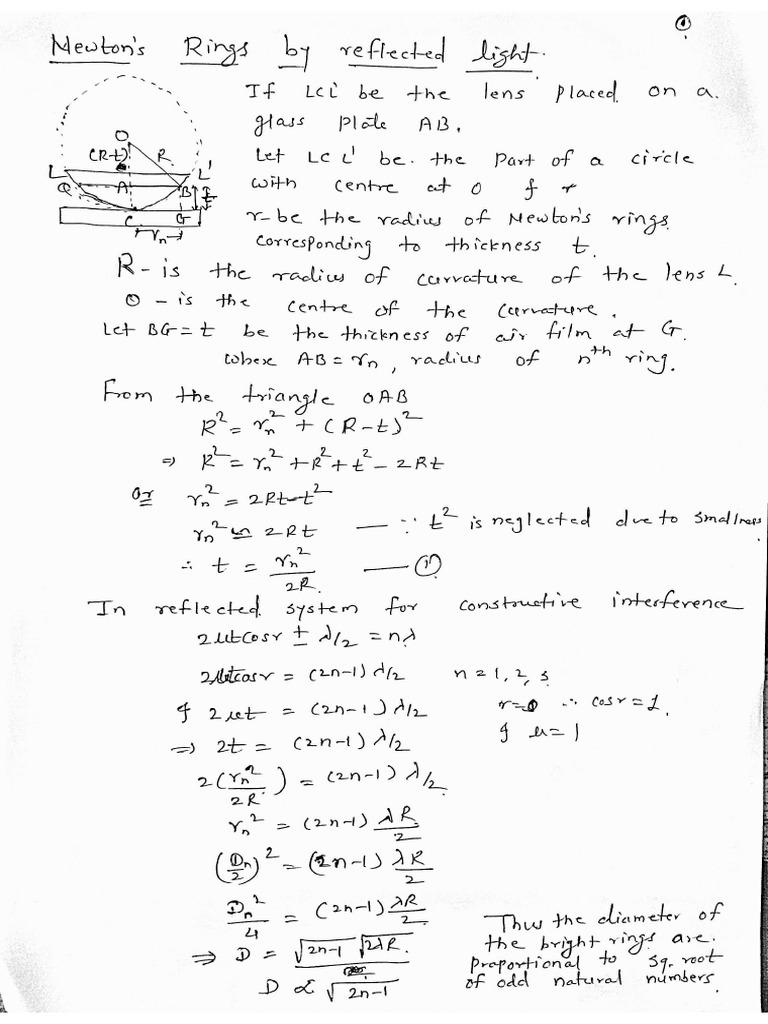 ①
Newton's Rings by reflected light.
If LCL' be the lens placed on a
glass plate AB,
Let LCL' be the part of a circle
with centre at O & r
r-be the radius of Newton's rings
corresponding to thickness t.
O
(R-t) R
L L'
Q A B t
C G
rₙ
R - is the radius of curvature of the lens L.
O - is the centre of the curvature.
Let BG = t be the thickness of air film at G.
where AB = rₙ, radius of nᵗʰ ring.
From the triangle OAB
R² = rₙ² + (R-t)²
⇒ R² = rₙ² + R² + t² - 2Rt
or rₙ² = 2Rt - t²
rₙ² ≃ 2Rt — ∵ t² is neglected due to smallness
∴ t = rₙ²/2R. — ①
In reflected system for constructive interference
2μtcosr ± λ/2 = nλ
2μtcosr = (2n-1) λ/2 n = 1, 2, 3
& 2μt = (2n-1) λ/2 r=0 ∴ cosr = 1.
⇒ 2t = (2n-1) λ/2 & μ = 1
2(rₙ²/2R) = (2n-1) λ/2
rₙ² = (2n-1) λR/2
(Dₙ/2)² = (2n-1) λR/2
Dₙ²/4 = (2n-1) λR/2
⇒ D = √2n-1 √2λR
D ∝ √2n-1
Thus the diameter of
the bright rings are
proportional to sq. root
of odd natural numbers.